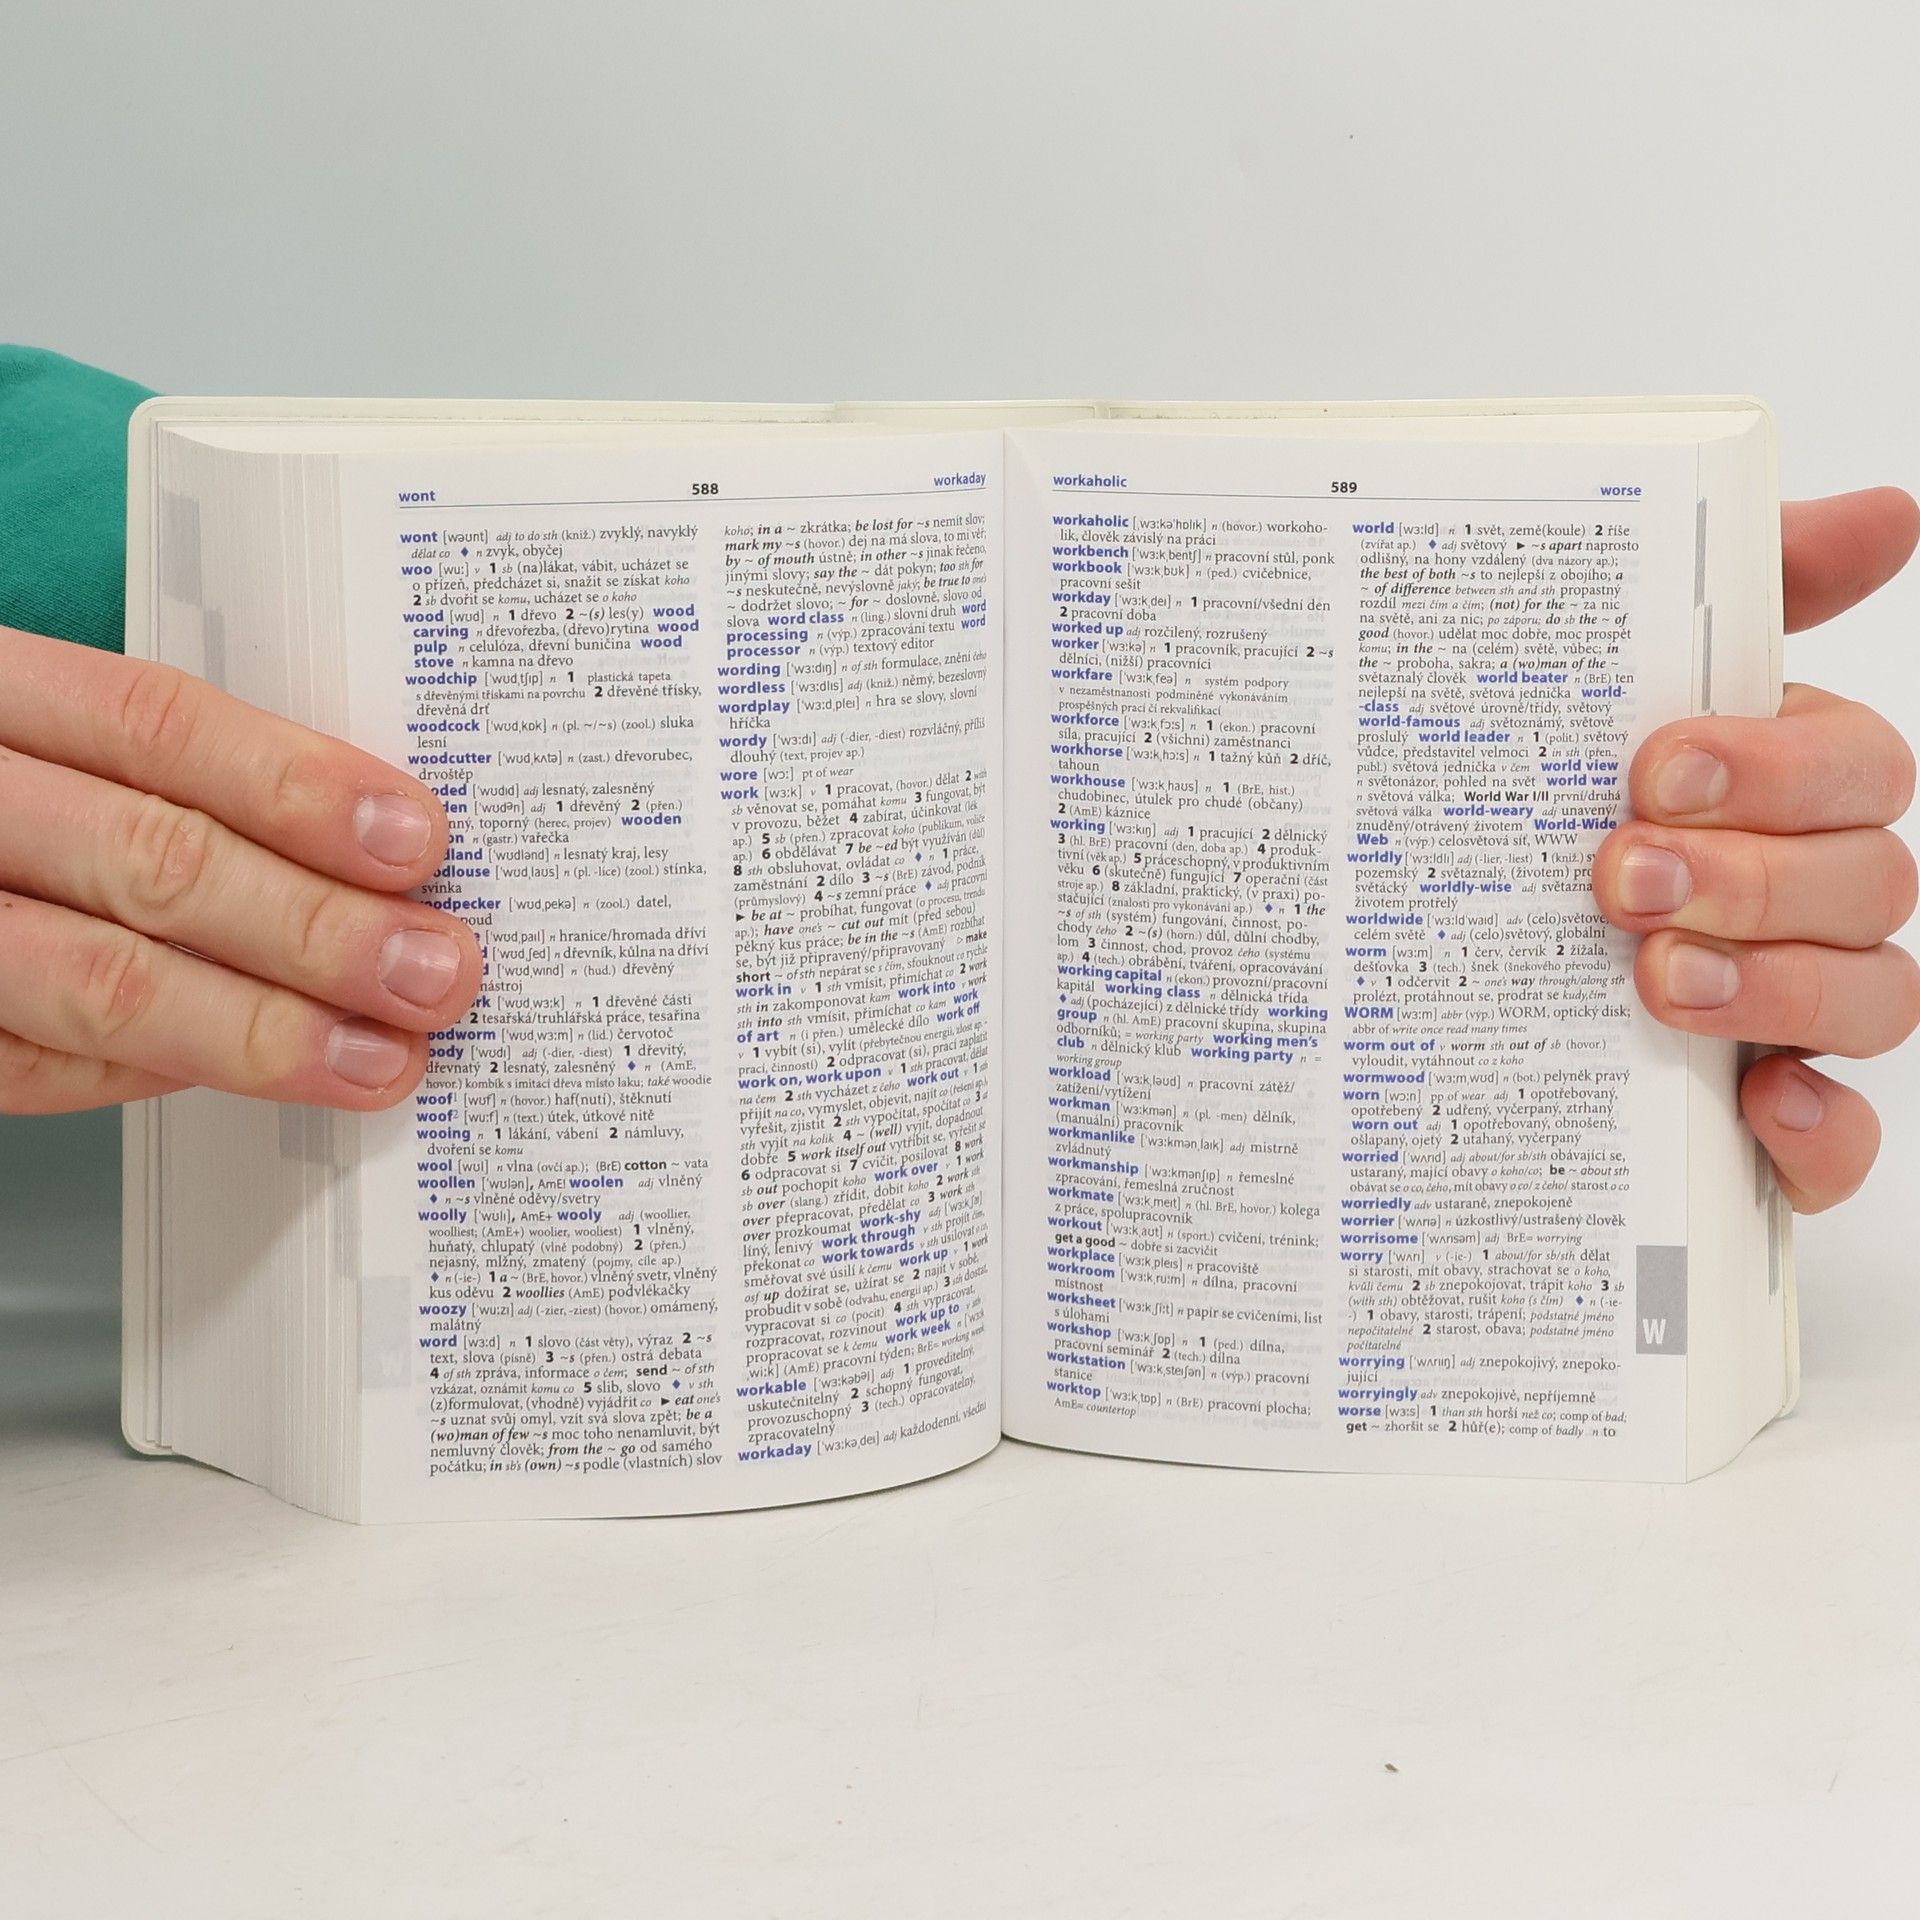 wont 588 workaday
wont [wəʊnt] adj to do sth (kniž.) zvyklý, navyklý
dělat co ♦ n zvyk, obyčej
woo [wu:] v 1 sb (na)lákat, vábit, ucházet se
o přízeň, předcházet si, snažit se získat koho
2 sb dvořit se komu, ucházet se o koho
wood [wʊd] n 1 dřevo 2 ~(s) les(y) wood
carving n dřevořezba, (dřevo)rytina wood
pulp n celulóza, dřevní buničina wood
stove n kamna na dřevo
woodchip [ˈwʊdˌtʃɪp] n 1 plastická tapeta
s dřevěnými třískami na povrchu 2 dřevěné třísky,
dřevěná drť
woodcock [ˈwʊdˌkɒk] n (pl. ~/~s) (zool.) sluka
lesní
woodcutter [ˈwʊdˌkʌtə] n (zast.) dřevorubec,
drvoštěp
[ˈwʊdɪd] adj lesnatý, zalesněný
[ˈwʊdən] adj 1 dřevěný 2 (přen.)
toporný (herec, projev) wooden
n (gastr.) vařečka
[ˈwʊdlənd] n lesnatý kraj, lesy
[ˈwʊdˌlaʊs] n (pl. -lice) (zool.) stínka,
svinka
[ˈwʊdˌpekə] n (zool.) datel,
[ˈwʊdˌpaɪl] n hranice/hromada dříví
[ˈwʊdˌʃed] n dřevník, kůlna na dříví
[ˈwʊdˌwɪnd] n (hud.) dřevěný
nástroj
[ˈwʊdˌwɜ:k] n 1 dřevěné části
2 tesařská/truhlářská práce, tesařina
[ˈwʊdˌwɜ:m] n (lid.) červotoč
[ˈwʊdɪ] adj (-dier, -diest) 1 dřevitý,
dřevnatý 2 lesnatý, zalesněný ♦ n (AmE,
hovor.) kombík s imitací dřeva místo laku; také woodie
woof¹ [wʊf] n (hovor.) haf(nutí), štěknutí
woof² [wu:f] n (text.) útek, útkové nitě
wooing n 1 lákání, vábení 2 námluvy,
dvoření se komu
wool [wʊl] n vlna (ovčí ap.); (BrE) cotton ~ vata
woollen [ˈwʊlən], AmE! woolen adj vlněný
♦ n ~s vlněné oděvy/svetry
woolly [ˈwʊlɪ], AmE+ wooly adj (woollier,
woolliest; (AmE+) woolier, wooliest) 1 vlněný,
huňatý, chlupatý (vlně podobný) 2 (přen.)
nejasný, mlžný, zmatený (pojmy, cíle ap.)
♦ n (-ie-) 1 a ~ (BrE, hovor.) vlněný svetr, vlněný
kus oděvu 2 woollies (AmE) podvlékačky
woozy [ˈwu:zɪ] adj (-zier, -ziest) (hovor.) omámený,
malátný
word [wɜ:d] n 1 slovo (část věty), výraz 2 ~s
text, slova (písně) 3 ~s (přen.) ostrá debata
4 of sth zpráva, informace o čem; send ~ of sth
vzkázat, oznámit komu co 5 slib, slovo ♦ v sth
(z)formulovat, (vhodně) vyjádřit co ► eat one's
~s uznat svůj omyl, vzít svá slova zpět; be a
(wo)man of few ~s moc toho nenamluvit, být
nemluvný člověk; from the ~ go od samého
počátku; in sb's (own) ~s podle (vlastních) slov
koho; in a ~ zkrátka; be lost for ~s nemít slov;
mark my ~s (hovor.) dej na má slova, to mi věř;
by ~ of mouth ústně; in other ~s jinak řečeno,
jinými slovy; say the ~ dát pokyn; too sth for
~s neskutečně, nevýslovně jaký; be true to one's
~ dodržet slovo; ~ for ~ doslovně, slovo od
slova word class n (ling.) slovní druh word
processing n (výp.) zpracování textu word
processor n (výp.) textový editor
wording [ˈwɜ:dɪŋ] n of sth formulace, znění čeho
wordless [ˈwɜ:dlɪs] adj (kniž.) němý, bezeslovný
wordplay [ˈwɜ:dˌpleɪ] n hra se slovy, slovní
hříčka
wordy [ˈwɜ:dɪ] adj (-dier, -diest) rozvláčný, příliš
dlouhý (text, projev ap.)
wore [wɔ:] pt of wear
work [wɜ:k] v 1 pracovat, (hovor.) dělat 2 with
sb věnovat se, pomáhat komu 3 fungovat, být
v provozu, běžet 4 zabírat, účinkovat (lék
ap.) 5 sb (přen.) zpracovat koho (publikum, voliče
ap.) 6 obdělávat 7 be ~ed být využíván (důl)
8 sth obsluhovat, ovládat co ♦ n 1 práce,
zaměstnání 2 dílo 3 ~s (BrE) závod, podnik
(průmyslový) 4 ~s zemní práce ♦ adj pracovní
► be at ~ probíhat, fungovat (o procesu, trendu
ap.); have one's ~ cut out mít (před sebou)
pěkný kus práce; be in the ~s (AmE) rozbíhat
se, být již připravený/připravovaný ▷ make
short ~ of sth nepárat se s čím, sfouknout co rychle
work in v 1 sth vmísit, přimíchat co 2 work
sth in zakomponovat kam work into v work
sth into sth vmísit, přimíchat co kam work
of art n (i přen.) umělecké dílo work off
v 1 vybít (si), vylít (přebytečnou energii, zlost ap. -
prací, činností) 2 odpracovat (si), prací zaplatit
work on, work upon v 1 sth pracovat, dělat
na čem 2 sth vycházet z čeho work out v 1 sth
přijít na co, vymyslet, objevit, najít co (řešení ap.),
vyřešit, zjistit 2 sth vypočítat, spočítat co 3 at
sth vyjít na kolik 4 ~ (well) vyjít, dopadnout
dobře 5 work itself out vytříbit se, vyřešit se
6 odpracovat si 7 cvičit, posilovat 8 work
sb out pochopit koho work over v 1 work
sb over (slang.) zřídit, dobít koho 2 work sth
over přepracovat, předělat co 3 work sth
over prozkoumat work-shy adj [ˈwɜ:kˌʃaɪ]
líný, lenivý work through v sth projít čím,
překonat co work towards v sth usilovat o co,
směřovat své úsilí k čemu work up v 1 work
osf up dožírat se, užírat se 2 najít v sobě,
probudit v sobě (odvahu, energii ap.) 3 sth dostat,
vypracovat si co (pocit) 4 sth vypracovat,
rozpracovat, rozvinout work up to v sth
propracovat se k čemu work week n [ˈwɜ:k
ˌwi:k] (AmE) pracovní týden; BrE= working week
workable [ˈwɜ:kəbəl] adj 1 proveditelný,
uskutečnitelný 2 schopný fungovat,
provozuschopný 3 (tech.) opracovatelný,
zpracovatelný
workaday [ˈwɜ:kəˌdeɪ] adj každodenní, všední
workaholic 589 worse
workaholic [ˌwɜ:kəˈhɒlɪk] n (hovor.) workoho-
lik, člověk závislý na práci
workbench [ˈwɜ:kˌbentʃ] n pracovní stůl, ponk
workbook [ˈwɜ:kˌbʊk] n (ped.) cvičebnice,
pracovní sešit
workday [ˈwɜ:kˌdeɪ] n 1 pracovní/všední den
2 pracovní doba
worked up adj rozčílený, rozrušený
worker [ˈwɜ:kə] n 1 pracovník, pracující 2 ~s
dělníci, (nižší) pracovníci
workfare [ˈwɜ:kˌfeə] n systém podpory
v nezaměstnanosti podmíněné vykonáváním
prospěšných prací či rekvalifikací
workforce [ˈwɜ:kˌfɔ:s] n 1 (ekon.) pracovní
síla, pracující 2 (všichni) zaměstnanci
workhorse [ˈwɜ:kˌhɔ:s] n 1 tažný kůň 2 dříč,
tahoun
workhouse [ˈwɜ:kˌhaʊs] n 1 (BrE, hist.)
chudobinec, útulek pro chudé (občany)
2 (AmE) káznice
working [ˈwɜ:kɪŋ] adj 1 pracující 2 dělnický
3 (hl. BrE) pracovní (den, doba ap.) 4 produk-
tivní (věk ap.) 5 práceschopný, v produktivním
věku 6 (skutečně) fungující 7 operační (část
stroje ap.) 8 základní, praktický, (v praxi) po-
stačující (znalosti pro vykonávání ap.) ♦ n 1 the
~s of sth (systém) fungování, činnost, po-
chody čeho 2 ~(s) (horn.) důl, důlní chodby,
lom 3 činnost, chod, provoz čeho (systému
ap.) 4 (tech.) obrábění, tváření, opracovávání
working capital n (ekon.) provozní/pracovní
kapitál working class n dělnická třída
♦ adj (pocházející) z dělnické třídy working
group n (hl. AmE) pracovní skupina, skupina
odborníků; = working party working men's
club n dělnický klub working party n =
working group
workload [ˈwɜ:kˌləʊd] n pracovní zátěž/
zatížení/vytížení
workman [ˈwɜ:kmən] n (pl. -men) dělník,
(manuální) pracovník
workmanlike [ˈwɜ:kmənˌlaɪk] adj mistrně
zvládnutý
workmanship [ˈwɜ:kmənʃɪp] n řemeslné
zpracování, řemeslná zručnost
workmate [ˈwɜ:kˌmeɪt] n (hl. BrE, hovor.) kolega
z práce, spolupracovník
workout [ˈwɜ:kˌaʊt] n (sport.) cvičení, trénink;
get a good ~ dobře si zacvičit
workplace [ˈwɜ:kˌpleɪs] n pracoviště
workroom [ˈwɜ:kˌru:m] n dílna, pracovní
místnost
worksheet [ˈwɜ:kˌʃi:t] n papír se cvičeními, list
s úlohami
workshop [ˈwɜ:kˌʃɒp] n 1 (ped.) dílna,
pracovní seminář 2 (tech.) dílna
workstation [ˈwɜ:kˌsteɪʃən] n (výp.) pracovní
stanice
worktop [ˈwɜ:kˌtɒp] n (BrE) pracovní plocha;
AmE= countertop
world [wɜ:ld] n 1 svět, země(koule) 2 říše
(zvířat ap.) ♦ adj světový ► ~s apart naprosto
odlišný, na hony vzdálený (dva názory ap.);
the best of both ~s to nejlepší z obojího; a
~ of difference between sth and sth propastný
rozdíl mezi čím a čím; (not) for the ~ za nic
na světě, ani za nic; po záporu; do sb the ~ of
good (hovor.) udělat moc dobře, moc prospět
komu; in the ~ na (celém) světě, vůbec; in
the ~ proboha, sakra; a (wo)man of the ~
světaznalý člověk world beater n (BrE) ten
nejlepší na světě, světová jednička world-
-class adj světové úrovně/třídy, světový
world-famous adj světoznámý, světově
proslulý world leader n 1 (polit.) světový
vůdce, představitel velmoci 2 in sth (přen.,
publ.) světová jednička v čem world view
n světonázor, pohled na svět world war
n světová válka; World War I/II první/druhá
světová válka world-weary adj unavený/
znuděný/otrávený životem World-Wide
Web n (výp.) celosvětová síť, WWW
worldly [ˈwɜ:ldlɪ] adj (-lier, -liest) 1 (kniž.)
pozemský 2 světaznalý, (životem)
světácký worldly-wise adj
životem protřelý
worldwide [ˈwɜ:ldˈwaɪd] adv (celo)světově,
celém světě ♦ adj (celo)světový, globální
worm [wɜ:m] n 1 červ, červík 2 žížala,
dešťovka 3 (tech.) šnek (šnekového převodu)
♦ v 1 odčervit 2 ~ one's way through/along sth
prolézt, protáhnout se, prodrat se kudy, čím
WORM [wɜ:m] abbr (výp.) WORM, optický disk;
abbr of write once read many times
worm out of v worm sth out of sb (hovor.)
vyloudit, vytáhnout co z koho
wormwood [ˈwɜ:mˌwʊd] n (bot.) pelyněk pravý
worn [wɔ:n] pp of wear adj 1 opotřebovaný,
opotřebený 2 udřený, vyčerpaný, ztrhaný
worn out adj 1 opotřebovaný, obnošený,
ošlapaný, ojetý 2 utahaný, vyčerpaný
worried [ˈwʌrɪd] adj about/for sb/sth obávající se,
ustaraný, mající obavy o koho/co; be ~ about sth
obávat se o co, čeho, mít obavy o co/ z čeho/ starost o co
worriedly adv ustaraně, znepokojeně
worrier [ˈwʌrɪə] n úzkostlivý/ustrašený člověk
worrisome [ˈwʌrɪsəm] adj BrE= worrying
worry [ˈwʌrɪ] v (-ie-) 1 about/for sb/sth dělat
si starosti, mít obavy, strachovat se o koho,
kvůli čemu 2 sb znepokojovat, trápit koho 3 sb
(with sth) obtěžovat, rušit koho (s čím) ♦ n (-ie-
-) 1 obavy, starosti, trápení; podstatné jméno
nepočitatelné 2 starost, obava; podstatné jméno
počitatelné
worrying [ˈwʌrɪɪŋ] adj znepokojivý, znepoko-
jující
worryingly adv znepokojivě, nepříjemně
worse [wɜ:s] 1 than sth horší než co; comp of bad;
get ~ zhoršit se 2 hůř(e); comp of badly n to
W